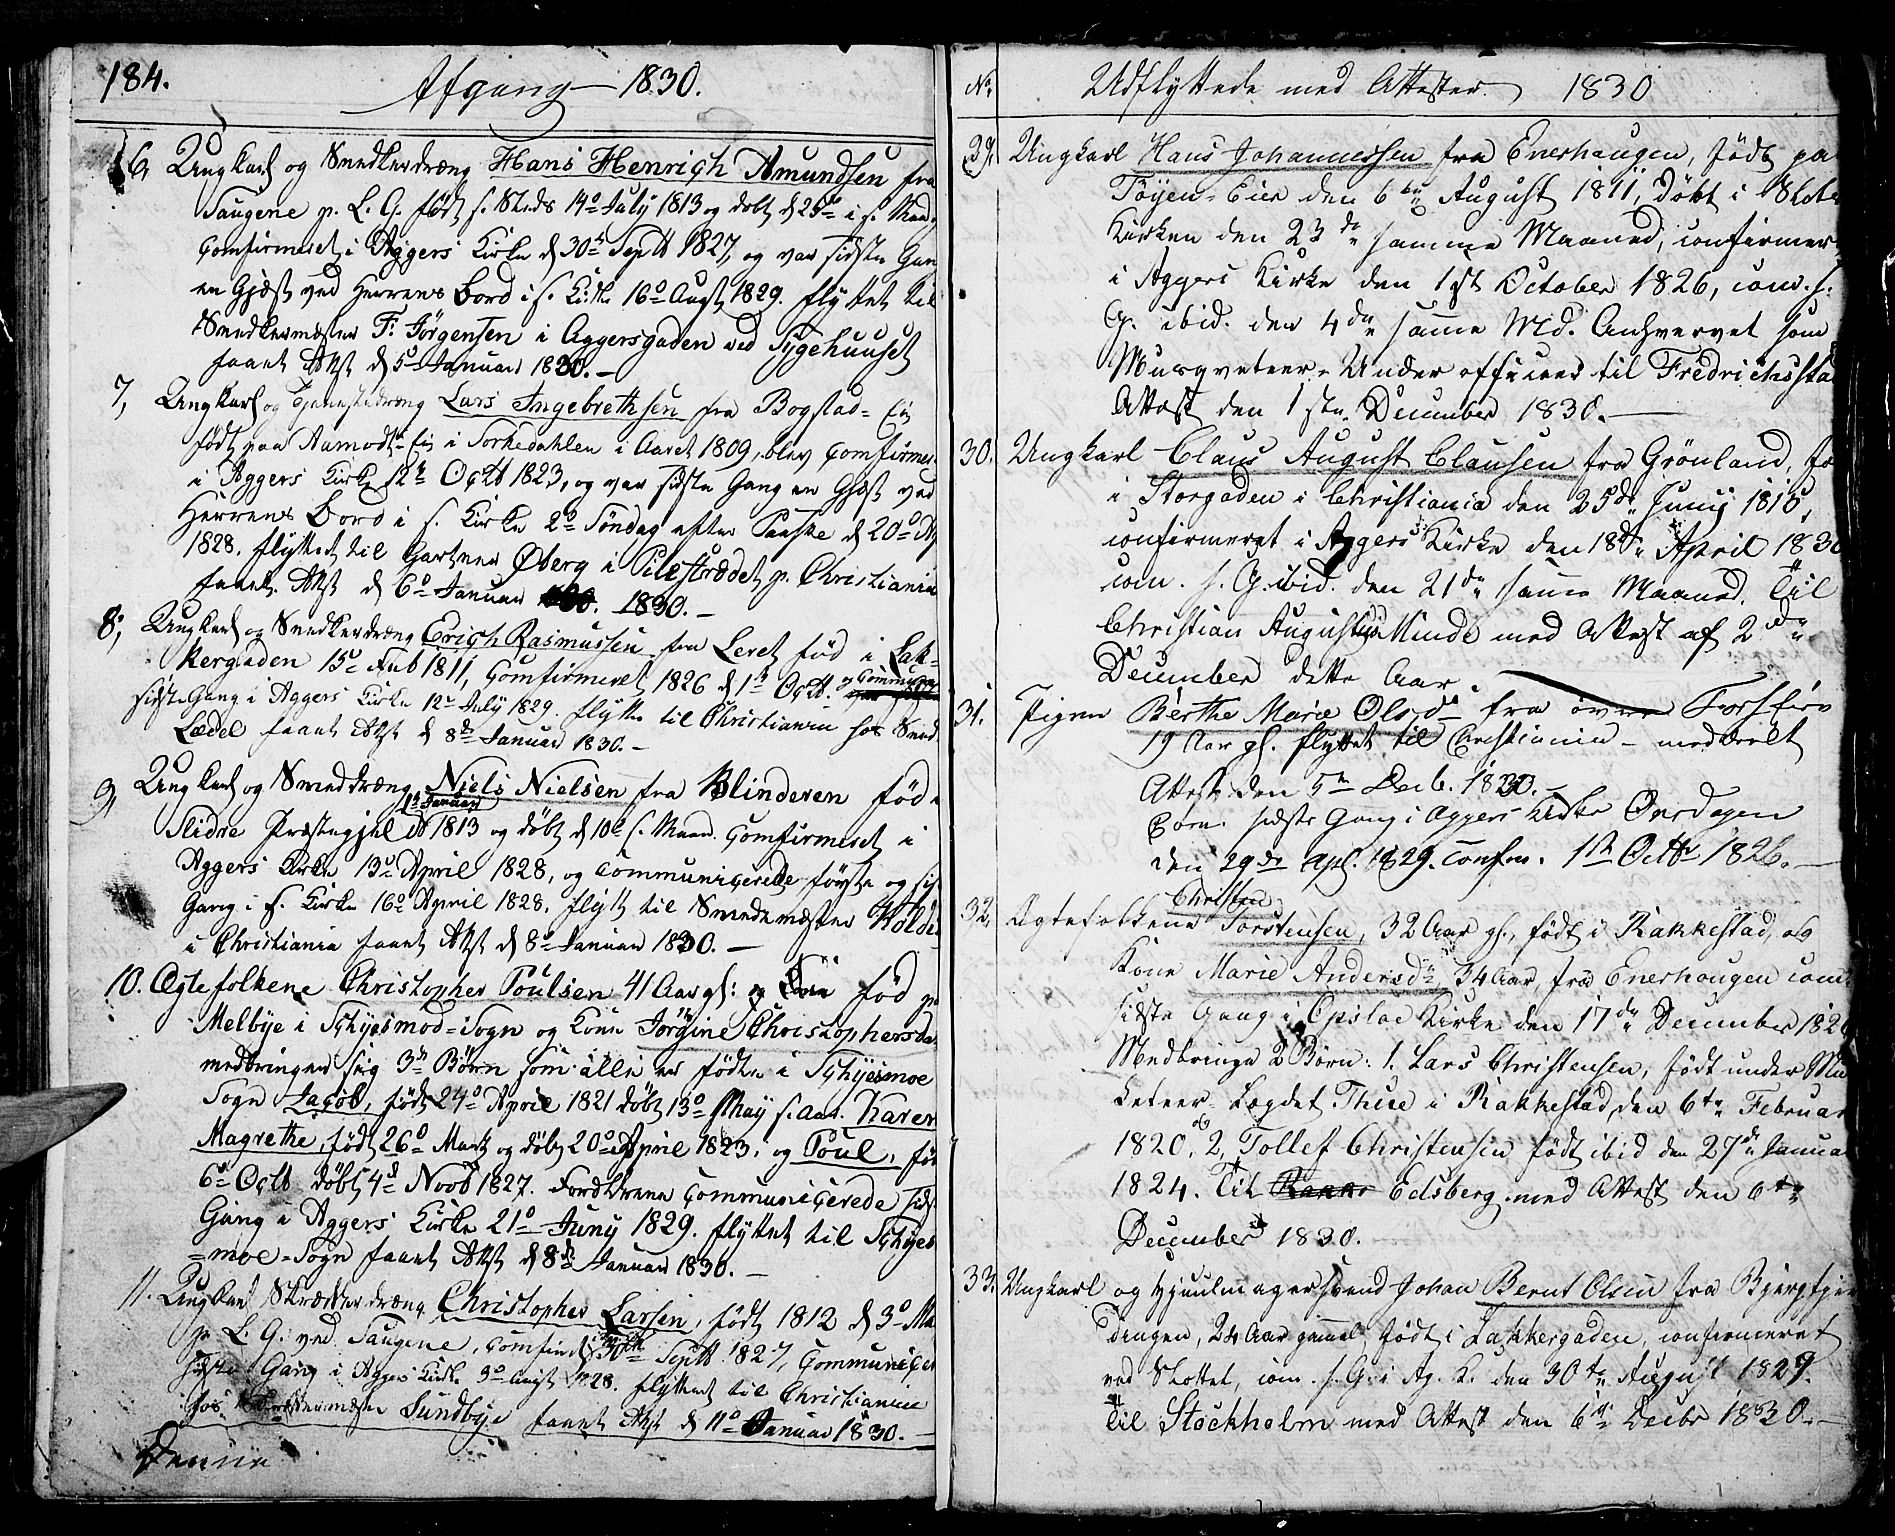 184.
Afgang — 1830.
6, Ungkarl og Snedkerdræng Hans Henrich Amundsen fra
Saugene p. L. G. født s. Steds 14de July 1813 og døbt d 25de i s. Maan.
Comfirmeret i Aggers Kirke d 30te Septb 1827, og var sidste Gan
en Gjæst ved Herrens Bord i s. Kirke 16de Augst 1829. flyttet til
Snedkermæster F. Jörgensen i Aggersgaden ved Sygehuuset
faaet Attst d 5te Januar 1830. —
7, Ungkarl og Tjenestedræng Lars Ingebrethsen fra Bogstad-Ei
født paa Aamodt-Ei i Sørkedahlen i Aaret 1809, blev Comfirme
i Aggers Kirke 12te Octb 1823, og var sidste Gang en Gjæst ved
Herrens Bord i s. Kirke 2de Søndag efter Paaske d 20de Ap
1828. flyttet til Gartner Øberg i Pilestrædet p. Christiania
faaet Attst d 6te Januar 1830. —
8, Ungkarl og Snedkerdræng Erich Rasmussen fra Leret fød i Lak-
kergaden 15de Feb 1811, Comfirmeret 1826 d 1te Octb. og Communi
sidste Gang i Aggers Kirke 12te July 1829 flytte til Christiania hos Sned
Lædel faaet Attst d 8de Januar 1830. —
9, Ungkarl og Smeddræng Niels Nielsen fra Blinderen fød i
1te Januar
Slidre Præstegjel 1813 og døbt d 10de s. Maan. Comfirmeret i
Aggers Kirke 13de April 1828, og Communicerede første og sid
Gang i s. Kirke 16de April 1828. flytt til Smedemæster Holde
i Christiania faaet Attst d 8de Januar 1830. —
10. Ægtefolkene Christopher Poulsen 41 Aar gl: og fød p
Melbye i Schjesmod-Sogn og Kone Jørgine Christophersda
medbringer sig 3de Børn som alle er fødte i Schjesmoe
Sogn Jacob, født 24de April 1821 døbt 13de May s. Aar. Karen
Magrethe, født 26de Marts og døbt 20de April 1823. og Poul, fø
6te Octb døbt 4de Novb 1827. Forældrene Communicerede sids
Gang i Aggers Kirke 21de Juny 1829. flyttet til Schjes
=moe-Sogn faaet Attst d 8de Januar 1830. —
11. Ungkarl Skrædder dræng Christopher Larsen, født 1812 d 3de Ma
p. L. G. ved Saugene, Comfird 30te Septb 1827, Communicer
sidste Gang i Aggers Kirke 3de Augst 1828. flyttet til Christiania
hos Skræddermæster Sundbye faaet Attst d 11te Januar 1830. —
Denne
No.
Udflyttede med Attester. 1830
29. Ungkarl Hans Johannessen fra Enerhaugen, født pa
Töyen-Eier den 6te August 1811, döbt i Slots
Kirken den 23de samme Maaned, confirmer
i Aggers Kirke den 1st October 1826, com. s.
G. ibid. den 4de samme Md. Anhvervet som
Musqveteer-Under officeer til Fredrichsstad
Attest den 1ste December 1830. —
30. Ungkarl Claus August Clausen fra Grönland, fø
i Storgaden i Christiania den 25de Junij 1815,
confirmeret i Aggers Kirke den 18de April 1830
com. s. G. ibid. den 21de samme Maaned. Til
Christian Augusts Minde med Attest af 2de
December dette Aar.
31. Pigen Berthe Marie Olsdr fra övre Fossfire
19 Aar gl. flyttet til Christiania — meddeelt
Attest den 5te Decb. 1830. —
Com. sidste Gang i Aggers Kirke Onsdagen
den 29de Apl. 1829. Confm. 1te Octbr 1826. —
Christen
32. Ægtefolkene Torstensen, 32 Aar gl., født i Rakkestad, og
Kone Marie Andersdr 34 Aar, fra Enerhougen com.
sidste Gang i Opsloe Kirke den 17de December 1826
Medbringe 2 Børn: 1. Lars Christensen, født under Mu
keteer-Lægdet Thue i Rakkestad, den 6te Februar
1820. og 2, Tollef Christensen født ibid den 27de Janua
1824. Til Rakke Edsberg med Attest den 6te
December 1830.
33. Ungkarl og Hjuulmagersvend Johan Bernt Olsen fra Bjergfjer
dingen, 24 Aar gammel født i Lakkergaden, confirmeret
ved Slottet, com. s. G. i Ag. K. den 30te August 1829.
Til Stockholm med Attest den 6te Decbr 1830. —